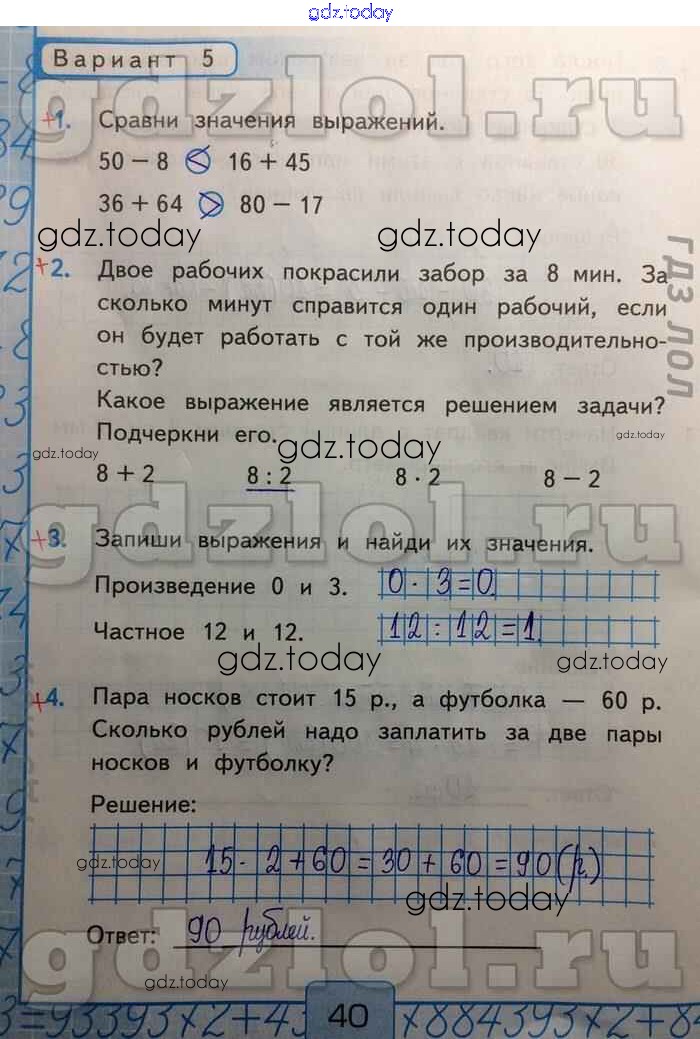 gdz.today
Вариант 5
gdzlol.ru
+1. Сравни значения выражений.
50 − 8 < 16 + 45
36 + 64 > 80 − 17
gdz.today gdz.today
гдз лол
+2. Двое рабочих покрасили забор за 8 мин. За
сколько минут справится один рабочий, если
он будет работать с той же производительно-
стью?
Какое выражение является решением задачи?
Подчеркни его.
gdz.today gdz.today gdz.today
8 + 2 8 : 2 8 · 2 8 − 2
gdzlol.ru
+3. Запиши выражения и найди их значения.
Произведение 0 и 3. 0 · 3 = 0
Частное 12 и 12. 12 : 12 = 1
gdz.today gdz.today
+4. Пара носков стоит 15 р., а футболка — 60 р.
Сколько рублей надо заплатить за две пары
носков и футболку?
Решение:
15 · 2 + 60 = 30 + 60 = 90 (р.)
gdz.today gdz.today
Ответ: 90 рублей.
gdzlol.ru
gdz.today gdz.today
3=93393×2+43 40 ×884393×2+84